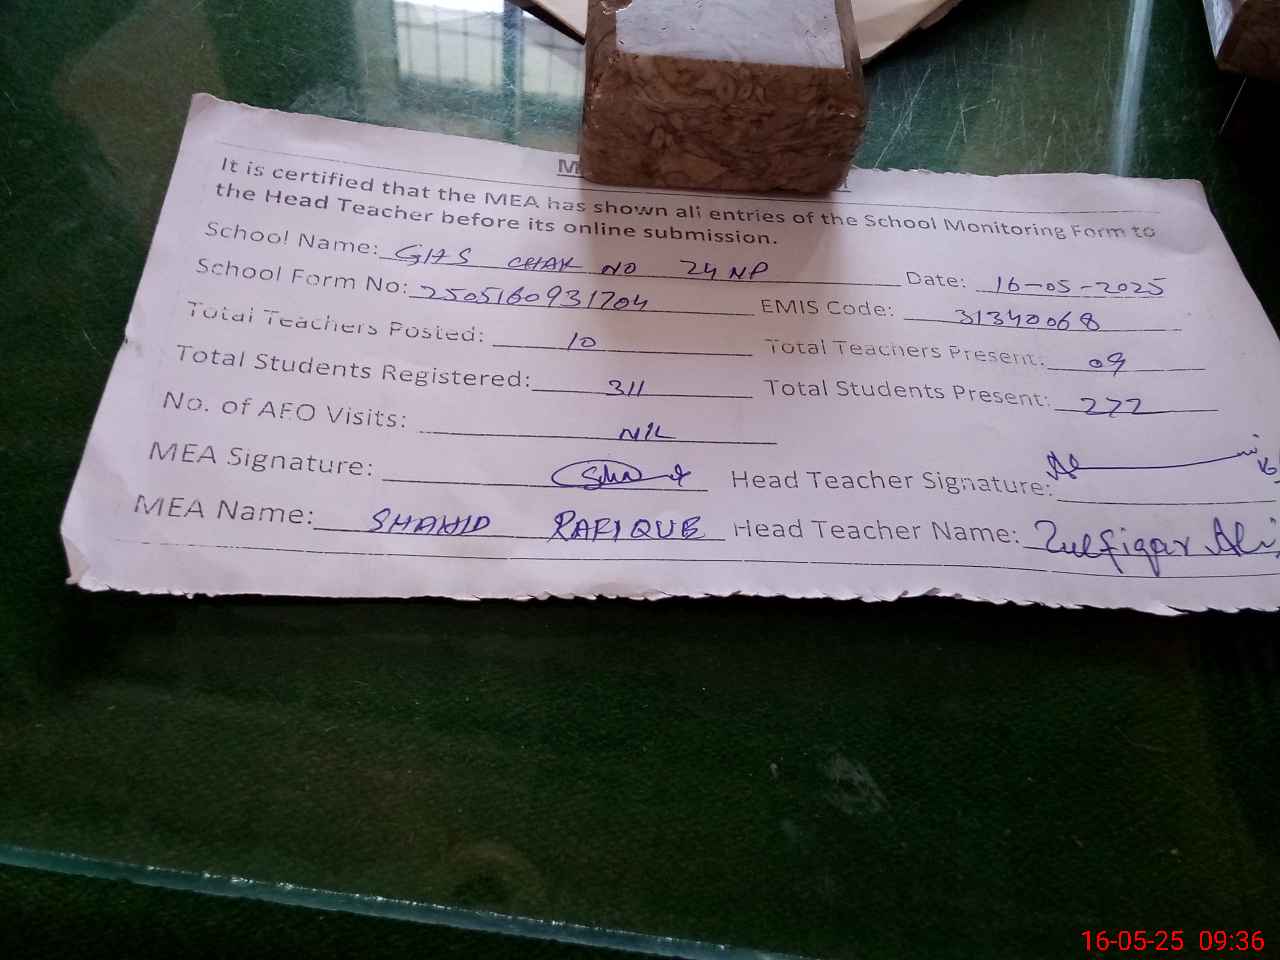 It is certified that the MEA has shown all entries of the School Monitoring Form to
the Head Teacher before its online submission.
School Name: GHS CHAK NO 24 NP Date: 16-05-2025
School Form No: 2505160931704 EMIS Code: 31340068
Total Teachers Posted: 10 Total Teachers Present: 09
Total Students Registered: 311 Total Students Present: 272
No. of AEO Visits: NIL
MEA Signature: Head Teacher Signature:
MEA Name: SHAHID RAFIQUE Head Teacher Name: Zulfiqar Ali
16-05-25 09:36